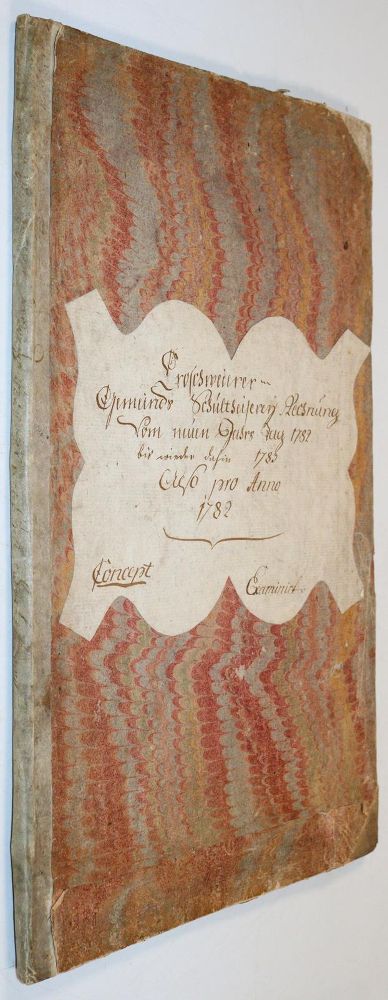 Froschweilrer
Gemeinds Schultheiserey Rechnung
Vom neuen Jahrs Tag 1782
bis wieder dahin 1783
Also pro Anno
1782
Concept
Examinirt